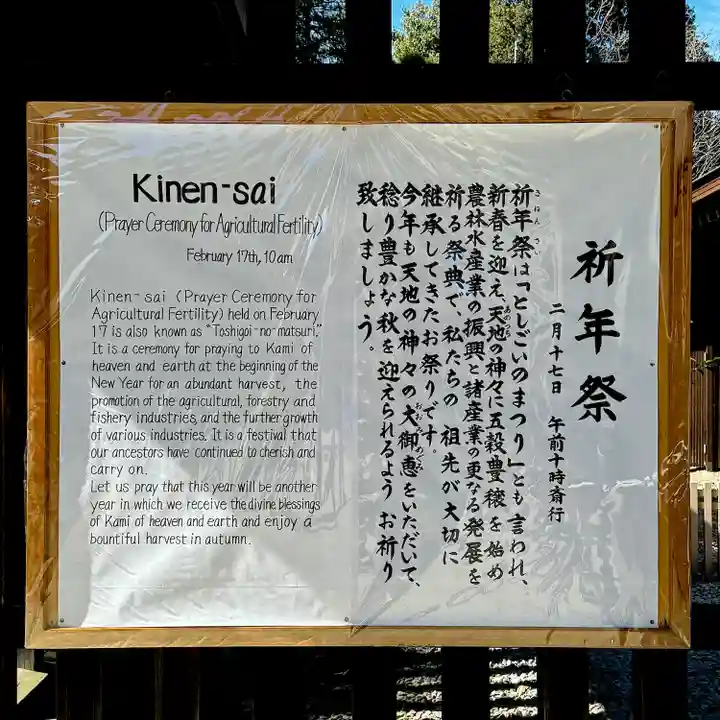 Kinen-sai
(Prayer Ceremony for Agricultural Fertility)
February 17th, 10am
Kinen-sai (Prayer Ceremony for
Agricultural Fertility) held on February
17 is also known as "Toshigoi-no-matsuri."
It is a ceremony for praying to Kami of
heaven and earth at the beginning of the
New Year for an abundant harvest, the
promotion of the agricultural, forestry and
fishery industries, and the further growth
of various industries. It is a festival that
our ancestors have continued to cherish and
carry on.
Let us pray that this year will be another
year in which we receive the divine blessings
of Kami of heaven and earth and enjoy a
bountiful harvest in autumn.
祈年祭
二月十七日 午前十時斎行
きねんさい
祈年祭は「としごいのまつり」とも言われ、
新春を迎え、天地の神々に五穀豊穣を始め
あめつち
農林水産業の振興と諸産業の更なる発展を
祈る祭典で、私たちの祖先が大切に
継承してきたお祭りです。
今年も天地の神々の大御恵をいただいて、
おおみめぐみ
稔り豊かな秋を迎えられるようお祈り
致しましょう。